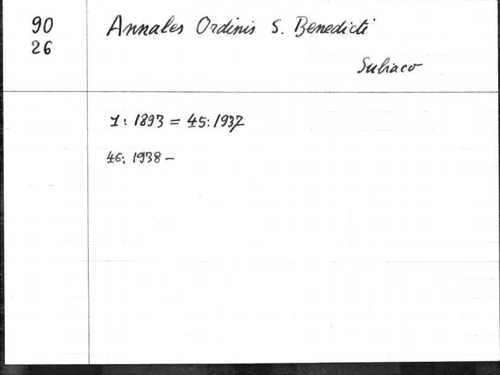 90
26
Annales Ordinis S. Benedicti
Subiaco
1: 1893 = 45: 1937
46: 1938 –